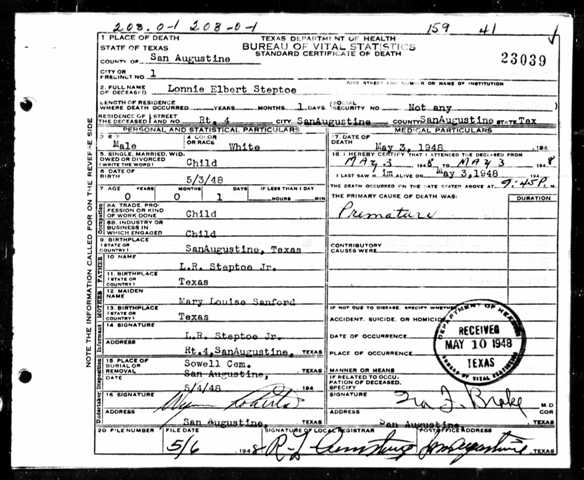 208.0-1 208-0-1 159 41
1 PLACE OF DEATH TEXAS DEPARTMENT OF HEALTH
STATE OF TEXAS BUREAU OF VITAL STATISTICS
COUNTY OF San Augustine STANDARD CERTIFICATE OF DEATH 23039
CITY OR
PRECINCT NO. 1
2 FULL NAME
OF DECEASED Lonnie Elbert Steptoe
LENGTH OF RESIDENCE
WHERE DEATH OCCURRED YEARS MONTHS 1 DAYS SOCIAL SECURITY NO. Not any
RESIDENCE OF THE DECEASED STREET AND NO. Rt. 4 CITY SanAugustine COUNTY SanAugustine STATE Tex
PERSONAL AND STATISTICAL PARTICULARS MEDICAL PARTICULARS
3 SEX Male 4 COLOR OR RACE White
17 DATE OF DEATH May 3, 1948 194
5 SINGLE, MARRIED, WID-
OWED OR DIVORCED
(WRITE THE WORD) Child
18 I HEREBY CERTIFY THAT I ATTENDED THE DECEASED FROM
May 3 1948 TO May 3 1948
I LAST SAW H im ALIVE ON May 3,1948
6 DATE OF BIRTH 5/3/48
THE DEATH OCCURRED ON THE DATE STATED ABOVE AT 9:45P M.
7 AGE YEARS MONTHS DAYS IF LESS THAN 1 DAY
0 0 1 HOURS MIN
THE PRIMARY CAUSE OF DEATH WAS: DURATION
Premature
8A TRADE, PRO-
FESSION OR KIND
OF WORK DONE Child
8B INDUSTRY OR
BUSINESS IN
WHICH ENGAGED Child
9 BIRTHPLACE
(STATE OR
COUNTRY) SanAugustine, Texas
CONTRIBUTORY
CAUSES WERE:
10 NAME L.R. Steptoe Jr.
11 BIRTHPLACE
(STATE OR
COUNTRY) Texas
12 MAIDEN
NAME Mary Louise Sanford
13 BIRTHPLACE
(STATE OR
COUNTRY) Texas
IF NOT DUE TO DISEASE, SPECIFY WHETHER
ACCIDENT, SUICIDE, OR HOMICIDE
14 SIGNATURE L.R. Steptoe Jr.
ADDRESS Rt.4,SanAugustine, TEXAS
DATE OF OCCURRENCE
PLACE OF OCCURRENCE
15 PLACE OF
BURIAL OR
REMOVAL Sowell Cem.
San Augustine, TEXAS
DATE 5/4/48 194
MANNER OR MEANS
IF RELATED TO OCCU-
PATION OF DECEASED,
SPECIFY
16 SIGNATURE
ADDRESS San Augustine, TEXAS
SIGNATURE Ira I. Brake M.D
ADDRESS San Augustine TEXAS
20 FILE NUMBER FILE DATE SIGNATURE OF LOCAL REGISTRAR POSTOFFICE ADDRESS
5/6 1948 R L Armstrong San Augustine TEXAS
DEPARTMENT OF HEALTH
RECEIVED
MAY 10 1948
TEXAS
BUREAU OF VITAL STATISTICS
NOTE THE INFORMATION CALLED FOR ON THE REVERSE SIDE
Occupation
FATHER
MOTHER
Informant